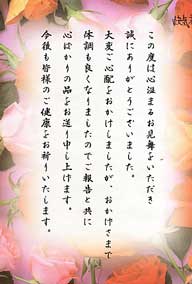 この度は心温まるお見舞をいただき
誠にありがとうございました。
大変ご心配をおかけしましたが、おかげさまで
体調も良くなりましたのでご報告と共に
心ばかりの品をお送り申し上げます。
今後も皆様のご健康をお祈りいたします。